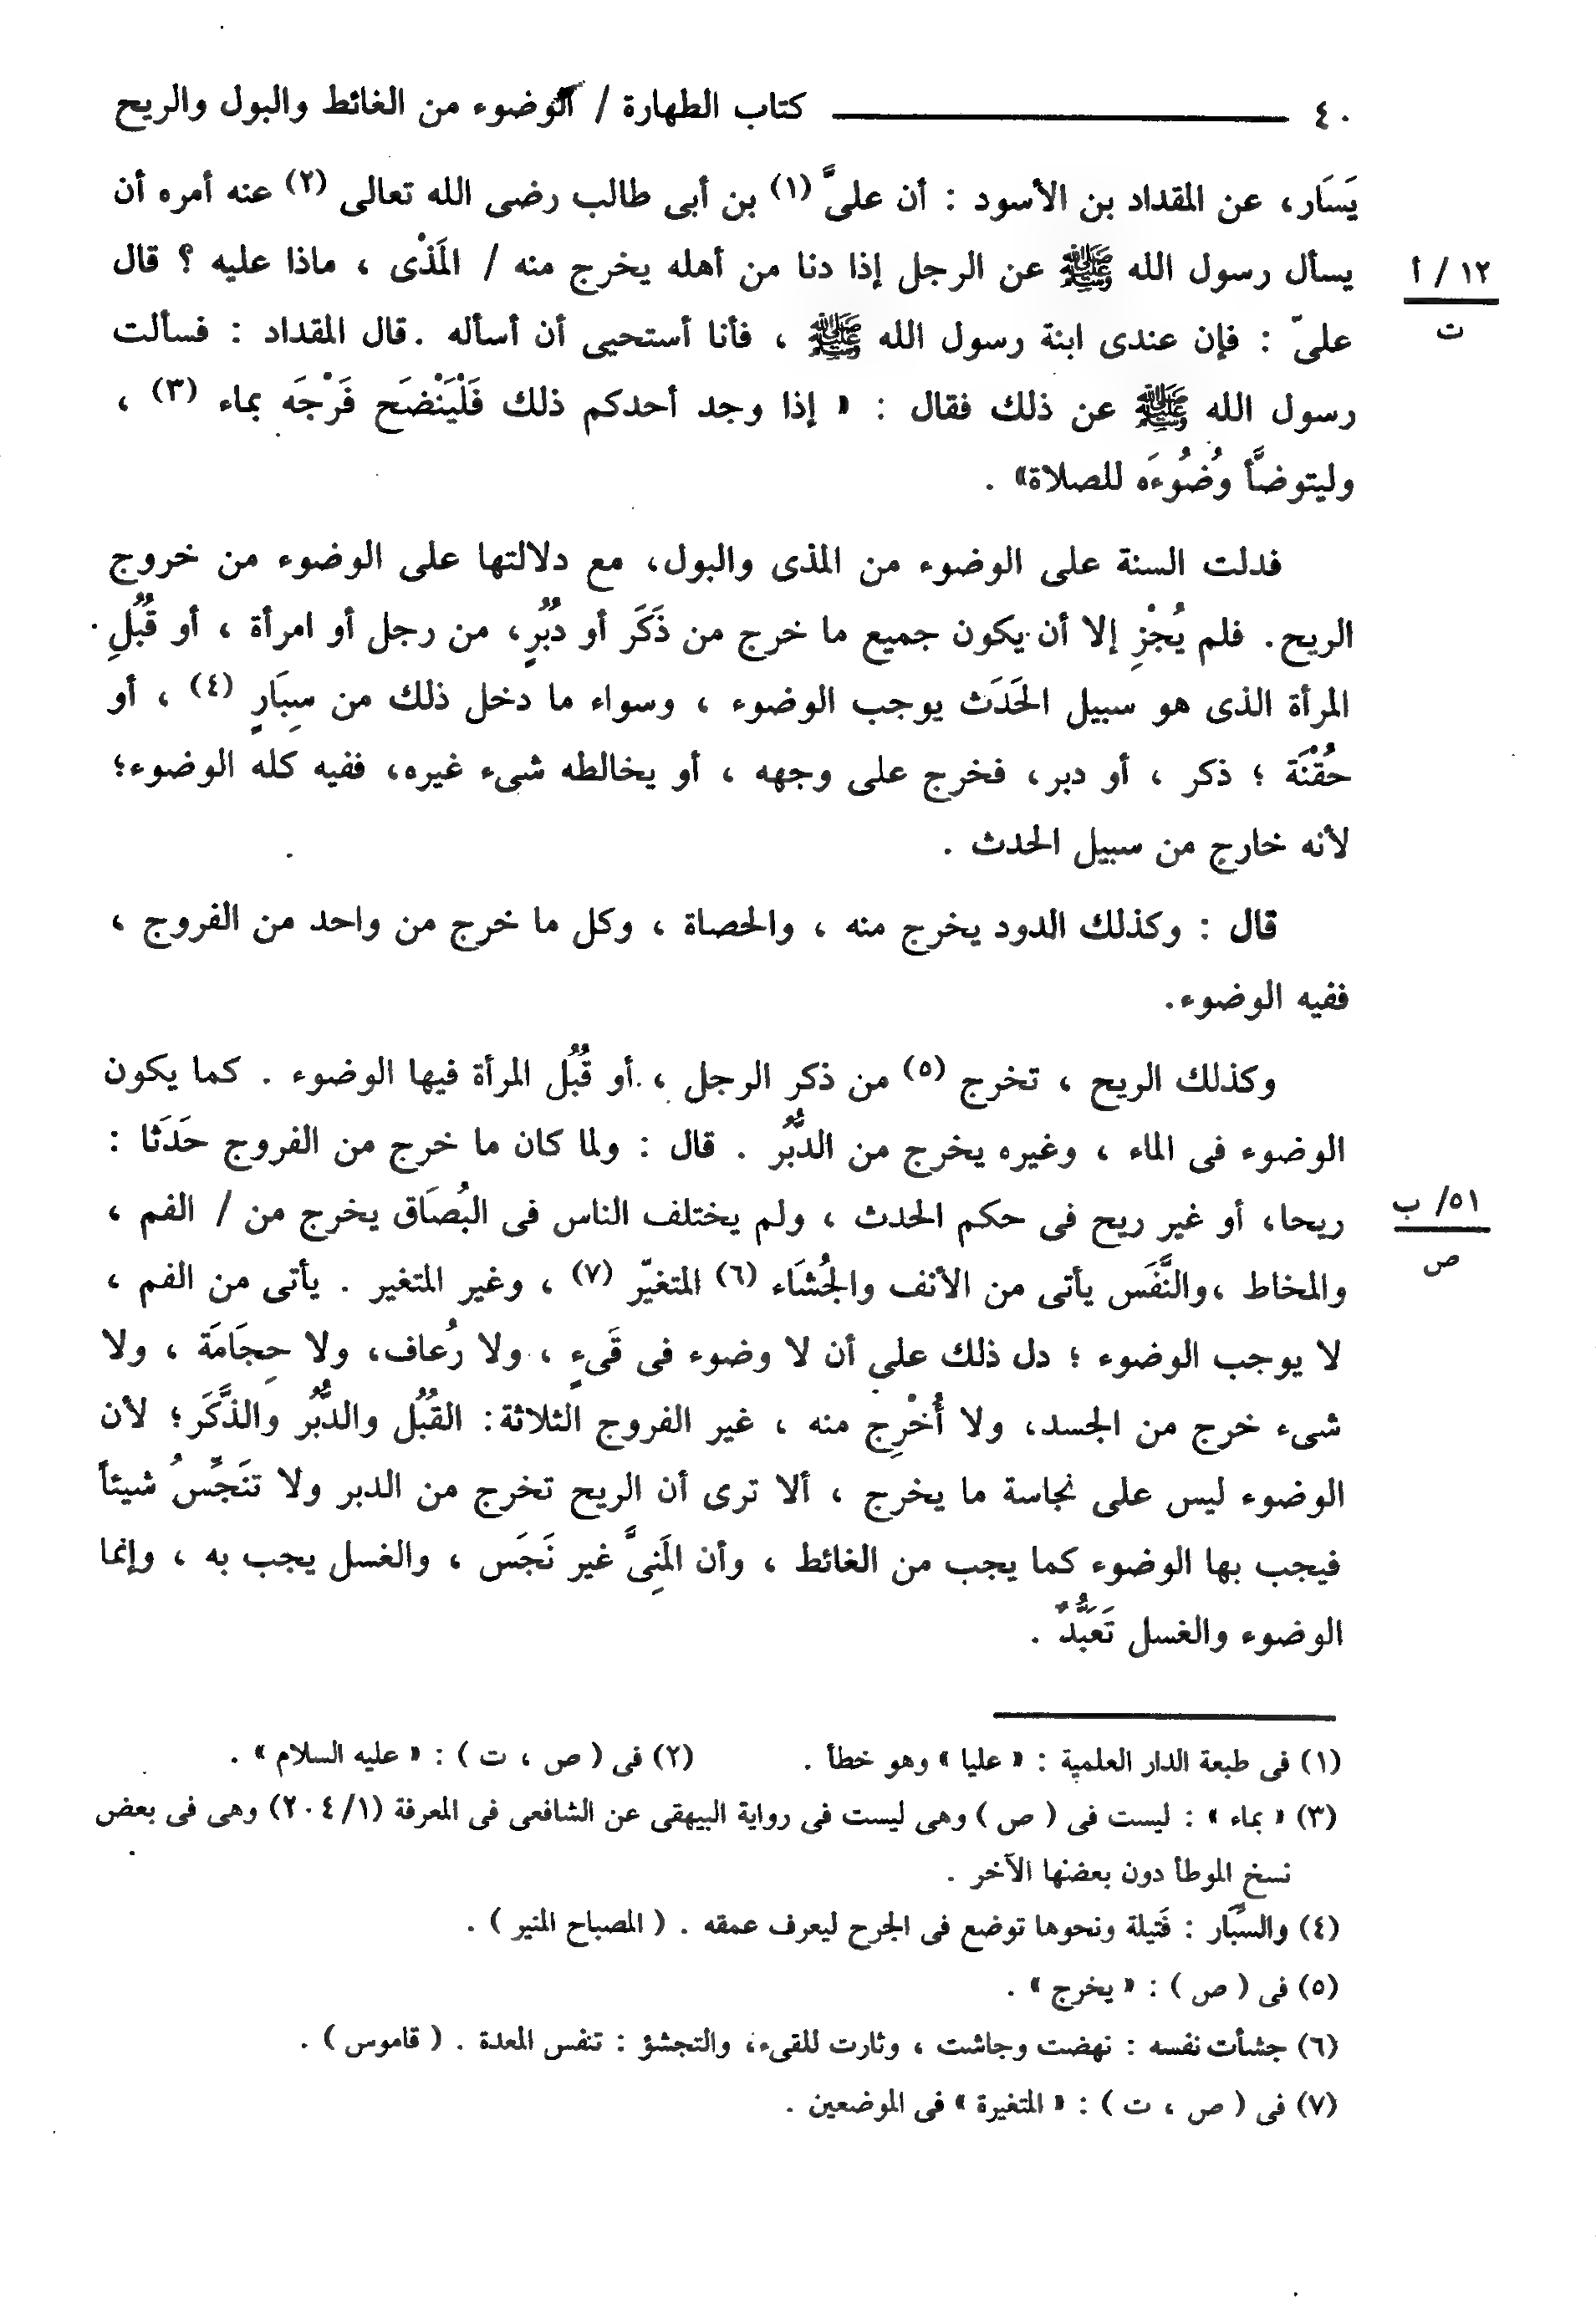 ٤٠ كتاب الطهارة / الوضوء من الغائط والبول والريح
يَسَار، عن المقداد بن الأسود : أن علىَّ (١) بن أبى طالب رضى الله تعالى (٢) عنه أمره أن
يسأل رسول الله ﷺ عن الرجل إذا دنا من أهله يخرج منه / المَذْى ، ماذا عليه ؟ قال
١٢ / أ
ت
علىّ : فإن عندى ابنة رسول الله ﷺ ، فأنا أستحيى أن أسأله . قال المقداد : فسألت
رسول الله ﷺ عن ذلك فقال : « إذا وجد أحدكم ذلك فَلْيَنْضَح فَرْجَه بماء (٣) ،
وليتوضَّأ وُضُوءَه للصلاة» .
فدلت السنة على الوضوء من المذى والبول، مع دلالتها على الوضوء من خروج
الريح. فلم يُجْزِ إلا أن يكون جميع ما خرج من ذَكَر أو دُبُرٍ، من رجل أو امرأة ، أو قُبُلِ
المرأة الذى هو سبيل الحَدَث يوجب الوضوء ، وسواء ما دخل ذلك من سِبَارٍ (٤) ، أو
حُقْنَة ؛ ذكر ، أو دبر، فخرج على وجهه ، أو يخالطه شىء غيره، ففيه كله الوضوء؛
لأنه خارج من سبيل الحدث .
قال : وكذلك الدود يخرج منه ، والحصاة ، وكل ما خرج من واحد من الفروج ،
ففيه الوضوء.
وكذلك الريح ، تخرج (٥) من ذكر الرجل ، أو قُبُل المرأة فيها الوضوء . كما يكون
الوضوء فى الماء ، وغيره يخرج من الدُّبُر . قال : ولما كان ما خرج من الفروج حَدَثا :
ريحا، أو غير ريح فى حكم الحدث ، ولم يختلف الناس فى البُصَاق يخرج من / الفم ،
٥١/ ب
ص
والمخاط ،والنَّفَس يأتى من الأنف والجُشَاء (٦) المتغيّر (٧) ، وغير المتغير . يأتى من الفم ،
لا يوجب الوضوء ؛ دل ذلك على أن لا وضوء فى قَىءٍ ، ولا رُعاف، ولا حِجَامَة ، ولا
شىء خرج من الجسد، ولا أُخْرِج منه ، غير الفروج الثلاثة: القُبُل والدُّبُر والذَّكَر؛ لأن
الوضوء ليس على نجاسة ما يخرج ، ألا ترى أن الريح تخرج من الدبر ولا تنَجِّسُ شيئاً
فيجب بها الوضوء كما يجب من الغائط ، وأن المَنِىَّ غير نَجَس ، والغسل يجب به ، وإنما
الوضوء والغسل تَعَبُّدٌ .
(١) فى طبعة الدار العلمية : « عليا » وهو خطأ . (٢) فى ( ص ، ت ) : « عليه السلام » .
(٣) « بماء » : ليست فى ( ص ) وهى ليست فى رواية البيهقى عن الشافعى فى المعرفة (١/ ٢٠٤) وهى فى بعض
نسخ الموطأ دون بعضها الآخر .
(٤) والسِّبَار : فَتيلة ونحوها توضع فى الجرح ليعرف عمقه . ( المصباح المنير ) .
(٥) فى ( ص ) : « يخرج » .
(٦) جشأت نفسه : نهضت وجاشت ، وثارت للقىء، والتجشؤ : تنفس المعدة . ( قاموس ) .
(٧) فى ( ص ، ت ) : « المتغيرة » فى الموضعين .